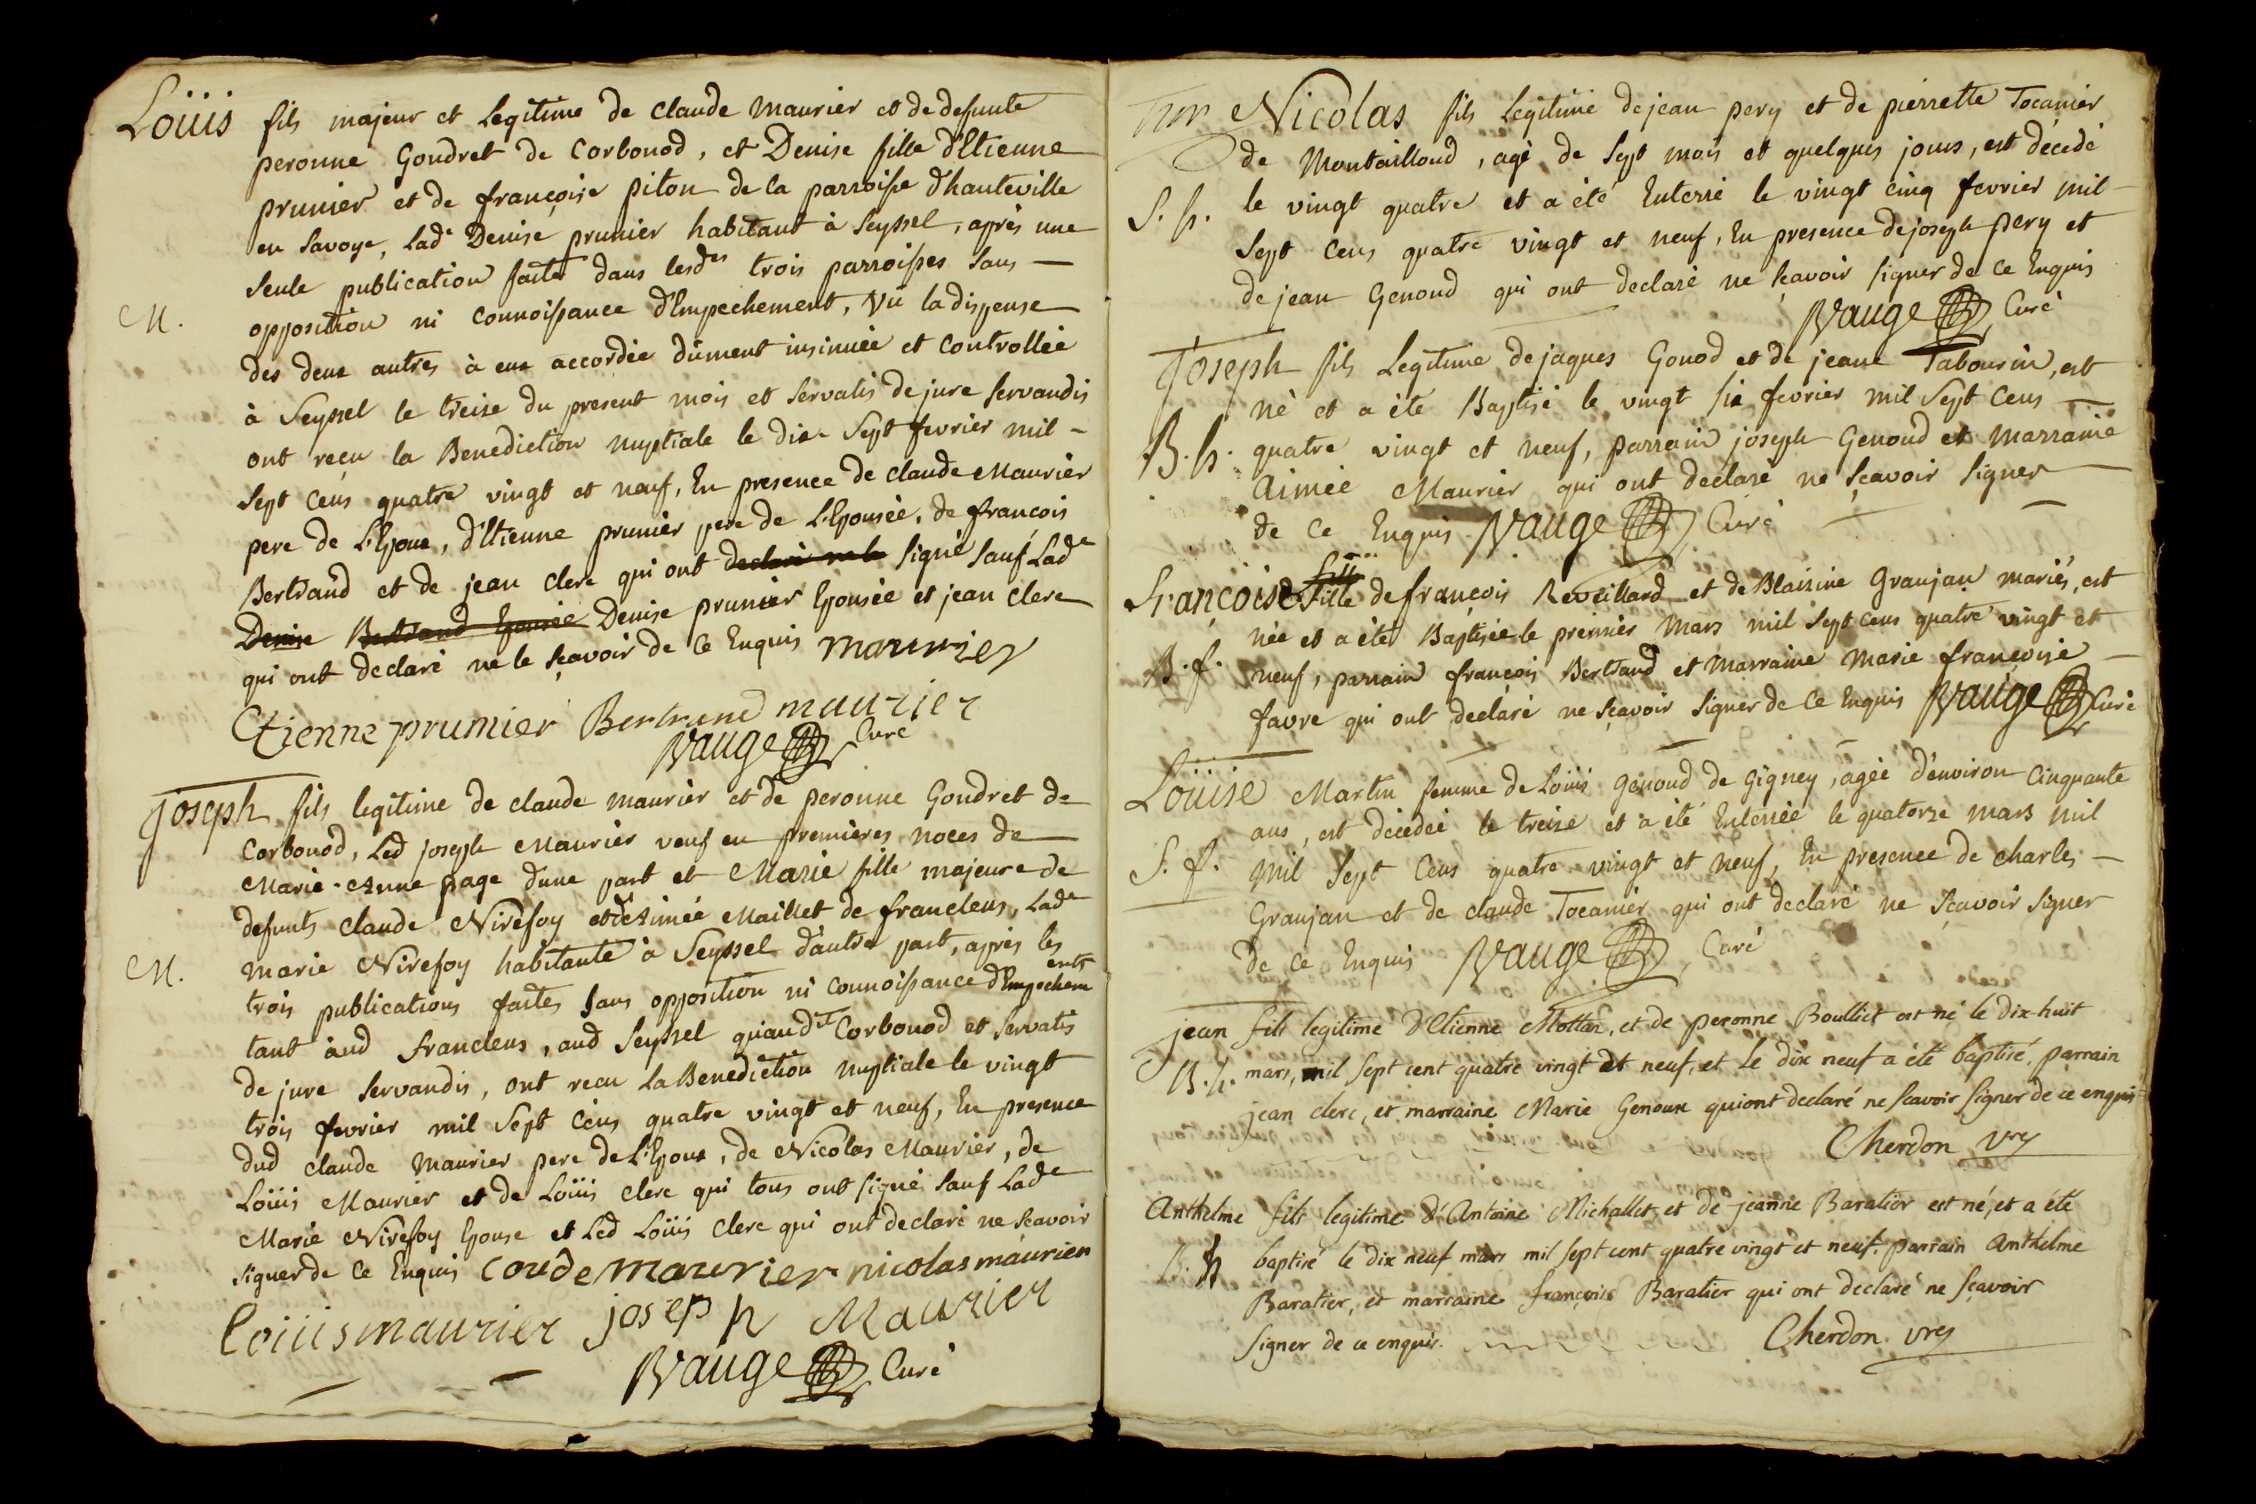 Loüis fils majeur et Legitime de Claude Maurier et de defunte
peronne Gondret de Corbonod, et Denise fille d'Etienne
prunier et de françoise piton de la parroisse d'hauteville
en Savoye, Lad.e Denise prunier habitant à Seyssel, après une
seule publication faite dans lesd.es trois parroisses sans —
M. opposition ni connoissance d'Empechement, Vû la dispense
des deux autres à eux accordée dûment insinuée et controllée
à Seyssel le treize du present mois et servatis de jure servandis
ont reçu la Benediction nuptiale le dix Sept fevrier mil -
Sept cens quatre vingt et neuf, En presence de claude Maurier
pere de L'Epoux, d'Etienne prunier pere de L'Epousée, de françois
Bertrand et de jean clerc qui ont declaré ne le signé sauf Lad.e
Denise Bertrand Epousée Denise prunier Epousée et jean clerc
qui ont declaré ne le sçavoir de ce Enquis maurier
Etienne prumier Bertrand maurier
Vauge Curé
Joseph fils legitime de claude maurier et de peronne Gondret de
Corbonod, Led joseph Maurier veuf en premieres noces de
Marie-Anne page d'une part et Marie fille majeure de
defunts claude Nirefoy et de Aimée Maillet de francleus, Lad.e
M. marie Nirefoy habitante à Seyssel d'autre part, après les
trois publications faites sans opposition ni connoissance d'Empechements
tant aud francleus, aud Seyssel quaud.it Corbonod et servatis
de jure servandis, ont recu La Benediction nuptiale le vingt
trois fevrier mil Sept Cens quatre vingt et neuf, En presence
dud claude Maurier pere de L'Epoux, de Nicolas Maurier, de
Loüis Maurier et de Loüis clerc qui tous ont signé sauf Lad.e
Marie Nirefoy Epouse et Led Loüis Clerc qui ont declaré ne Scavoir
signer de ce Enquis Coude maurier nicolas maurier
Loiiis maurier joseph Maurier
Vauge Curé
Nicolas fils Legitime de jean pery et de pierrette Tocanier
de Montailloud, agé de Sept mois et quelques jours, est décédé
S. h. le vingt quatre et a été Enterré le vingt cinq fevrier mil -
Sept cens quatre vingt et neuf, En presence de joseph pery et
de jean Genoud qui ont declaré ne sçavoir signer de ce Enquis
Vauge Curé
Joseph fils Legitime de jaques Gonod et de jeane Tabourin, est
né et a été Baptisé le vingt six fevrier mil Sept Cens —
B. h. quatre vingt et neuf, parrain joseph Genoud et Marraine
Aimée Maurier qui ont declaré ne sçavoir signer
de ce Enquis Vauge Curé
Françoise fille de françois Reveillard et de Blaisine Granjan mariés, est
née et a été Baptisée le premier Mars mil Sept Cens quatre vingt et
B. f. neuf, parrain françois Bertrand et Marraine Marie françoise —
favre qui ont declaré ne sçavoir signer de ce Enquis Vauge Curé
Loüise Martin femme de Loüis Genoud de Gigney, agée d'environ Cinquante
ans, est décedée le treize et a été Enterrée le quatorze Mars Mil
S. f. Mil Sept Cens quatre vingt et neuf, En presence de charles —
Granjan et de claude Tocanier qui ont declaré ne Sçavoir signer
de ce Enquis Vauge Curé
jean fils legitime d'Etienne Mottaz, et de peronne Boulliet est né le dix-huit
B. h. mars, mil sept cent quatre vingt et neuf, et le dix neuf a été baptisé, parrain
jean clerc, et marraine Marie Genoux qui ont declaré ne sçavoir signer de ce enquis
Cherdon v.re
Anthelme fils legitime d'Antoine Michallet, et de jeanne Baratier est né, et a été
B. h. baptisé le dix neuf mars mil sept cent quatre vingt et neuf. parrain Anthelme
Baratier, et marraine françoise Baratier qui ont declaré ne sçavoir
signer de ce enquis. Cherdon vre